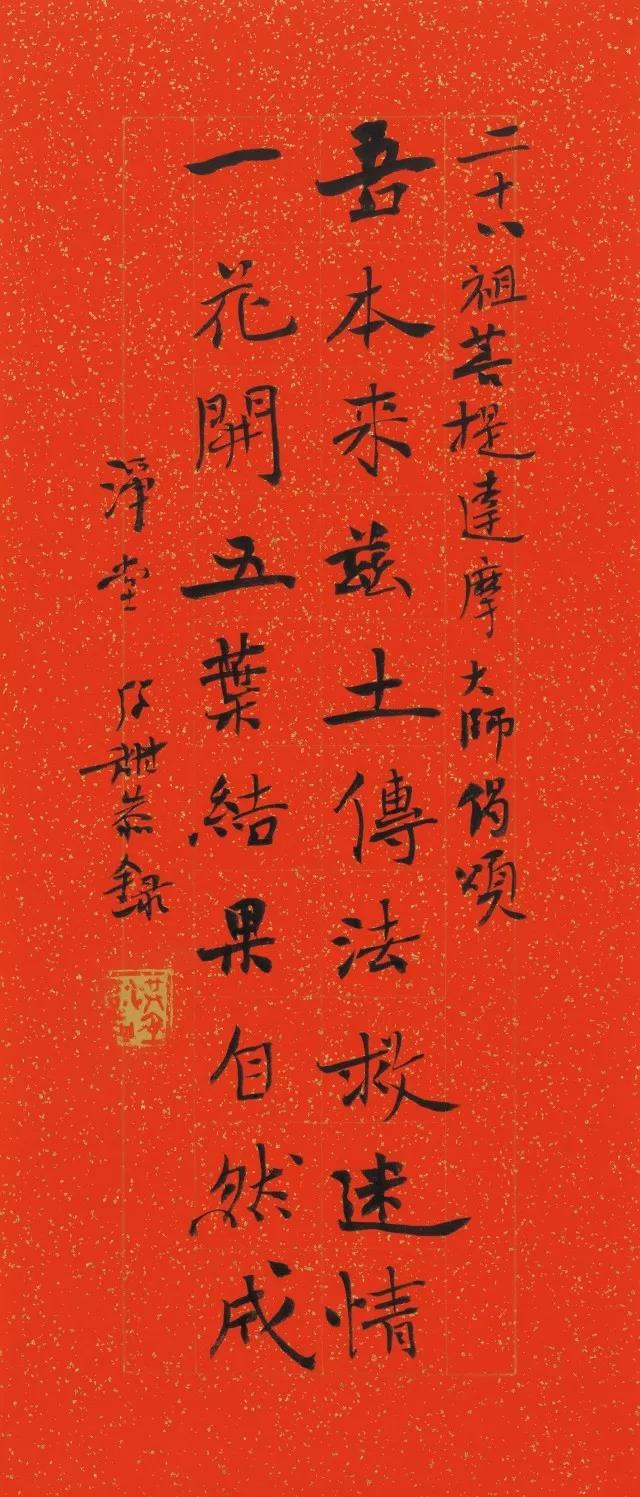 二十八祖菩提達摩大師偈頌
吾本来茲土傳法救迷情
一花開五葉結果自然成
淨堂 甜恭録